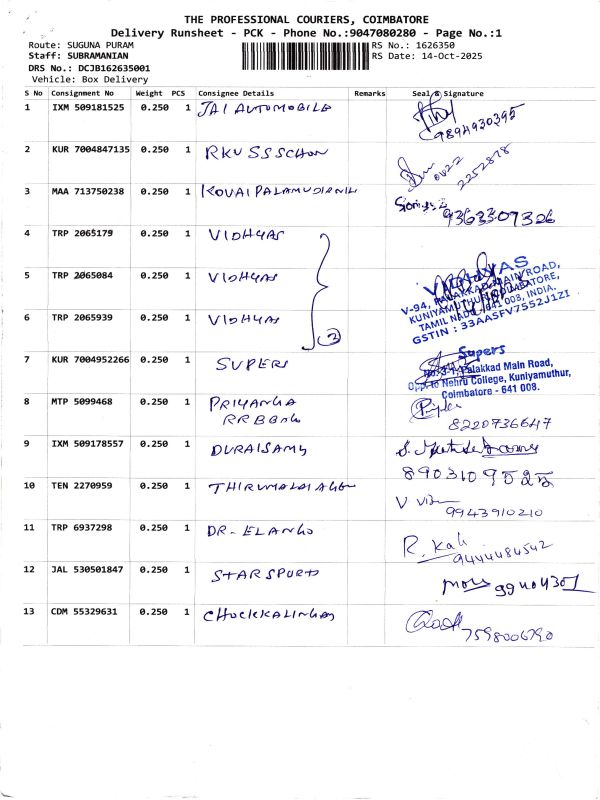 THE PROFESSIONAL COURIERS, COIMBATORE
Delivery Runsheet - PCK - Phone No.:9047080280 - Page No.:1
Route: SUGUNA PURAM RS No.: 1626350
Staff: SUBRAMANIAN RS Date: 14-Oct-2025
DRS No.: DCJB162635001
Vehicle: Box Delivery
S No Consignment No Weight PCS Consignee Details Remarks Seal & Signature
1 IXM 509181525 0.250 1 JAI AUTOMOBILE
9894930395
2 KUR 7004847135 0.250 1 RKV SS SCHON
0422 2252878
3 MAA 713750238 0.250 1 KOVAI PALAMUDIR
9363307326
4 TRP 2065179 0.250 1 VIDHYAS
5 TRP 2065084 0.250 1 VIDHYAS
6 TRP 2065939 0.250 1 VIDHYAS
3
VIDHYAS
V-94, PALAKKAD MAIN ROAD,
KUNIYAMUTHUR, COIMBATORE,
TAMIL NADU, 641 008, INDIA.
GSTIN : 33AASFV7552J1ZI
7 KUR 7004952266 0.250 1 SUPERS
Supers
Palakkad Main Road,
Opp. to Nehru College, Kuniyamuthur,
Coimbatore - 641 008.
8 MTP 5099468 0.250 1 PRIYANGA
8220736647
9 IXM 509178557 0.250 1 DURAISAMY
8903109525
10 TEN 2270959 0.250 1
9943910210
11 TRP 6937298 0.250 1 DR- ELANGO
R. Kali
9444484542
12 JAL 530501847 0.250 1 STAR SPORTS
13 CDM 55329631 0.250 1 CHOCKKALINGAM
7598006790